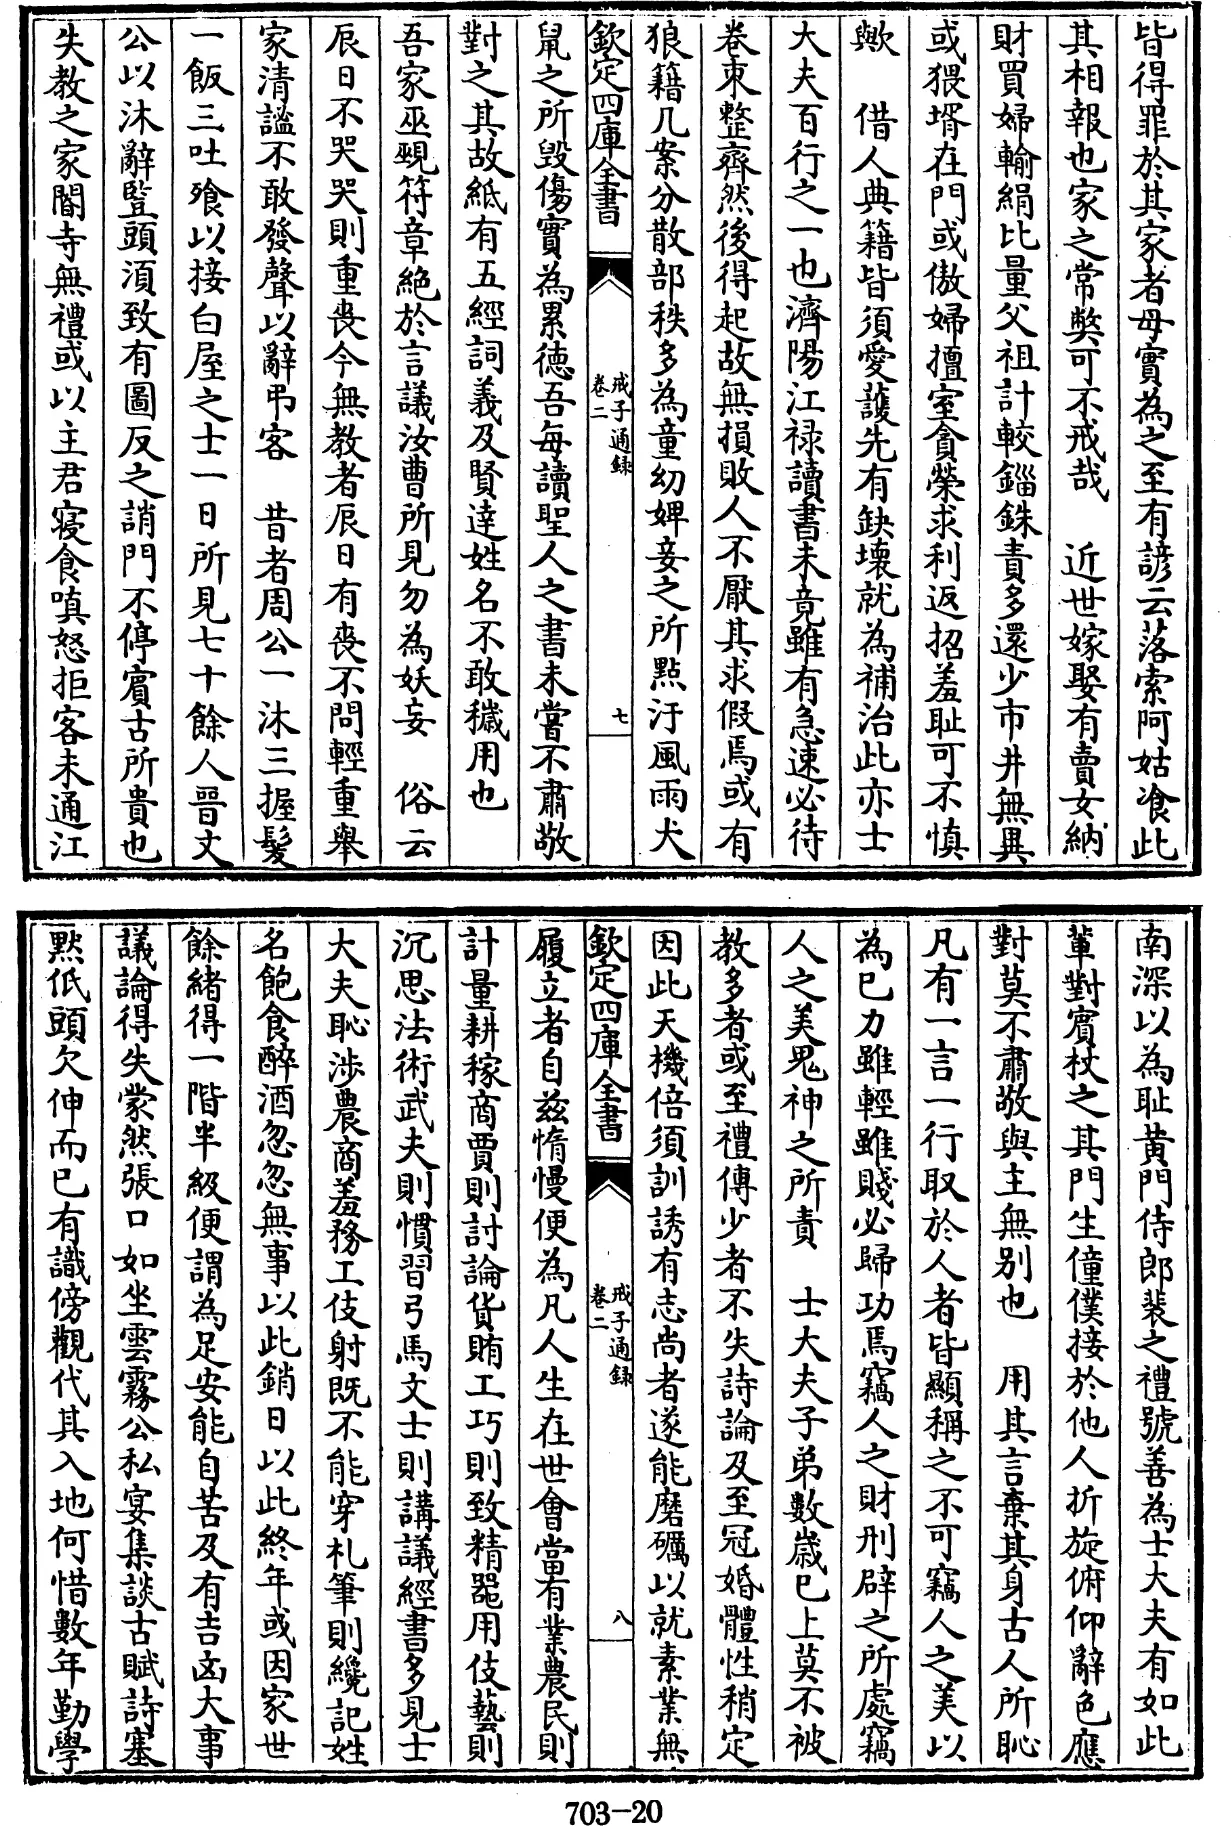 皆得罪於其家者母實為之至有諺云落索阿姑飡此
其相報也家之常弊可不戒哉　近世嫁娶有賣女納
財買婦輸絹比量父祖計較錙銖責多還少市井無異
或猥壻在門或傲婦擅室貪榮求利返招羞耻可不慎
歟　借人典籍皆須愛護先有缺壞就為補治此亦士
大夫百行之一也濟陽江禄讀書未竟雖有急速必待
卷束整齊然後得起故無損敗人不厭其求假焉或有
狼籍几案分散部秩多為童幼婢妾之所點汙風雨犬
欽定四庫全書　戒子通録卷二　七
鼠之所毁傷實為累徳吾每讀聖人之書未嘗不肅敬
對之其故紙有五經詞義及賢達姓名不敢穢用也
吾家巫覡符章絶於言議汝曹所見勿為妖妄　俗云
辰日不哭哭則重喪今無教者辰日有喪不問輕重舉
家清謐不敢發聲以辭弔客　昔者周公一沐三握髮
一飯三吐飱以接白屋之士一日所見七十餘人晋文
公以沐辭豎頭湏致有圖反之誚門不停賓古所貴也
失教之家閽寺無禮或以主君寝食嗔怒拒客未通江
南深以為耻黄門侍郎裴之禮號善為士大夫有如此
輩對賓杖之其門生僮僕接於他人折旋俯仰辭色應
對莫不肅敬與主無别也　用其言棄其身古人所恥
凡有一言一行取於人者皆顯稱之不可竊人之美以
為已力雖輕雖賤必歸功焉竊人之財刑辟之所處竊
人之美鬼神之所責　士大夫子弟數嵗已上莫不被
教多者或至禮傳少者不失詩論及至冠婚體性稍定
因此天機倍須訓誘有志尚者遂能磨礪以就素業無
欽定四庫全書　戒子通録卷二　八
履立者自兹惰慢便為凡人生在世會當有業農民則
計量耕稼商賈則討論貨賄工巧則致精器用伎藝則
沉思法術武夫則慣習弓馬文士則講議經書多見士
大夫恥涉農商羞務工伎射既不能穿札筆則纔記姓
名飽食醉酒忽忽無事以此銷日以此終年或因家世
餘緒得一階半級便謂為足安能自苦及有吉凶大事
議論得失蒙然張口如坐雲霧公私宴集談古賦詩塞
黙低頭欠伸而已有識傍觀代其入地何惜數年勤學
703-20